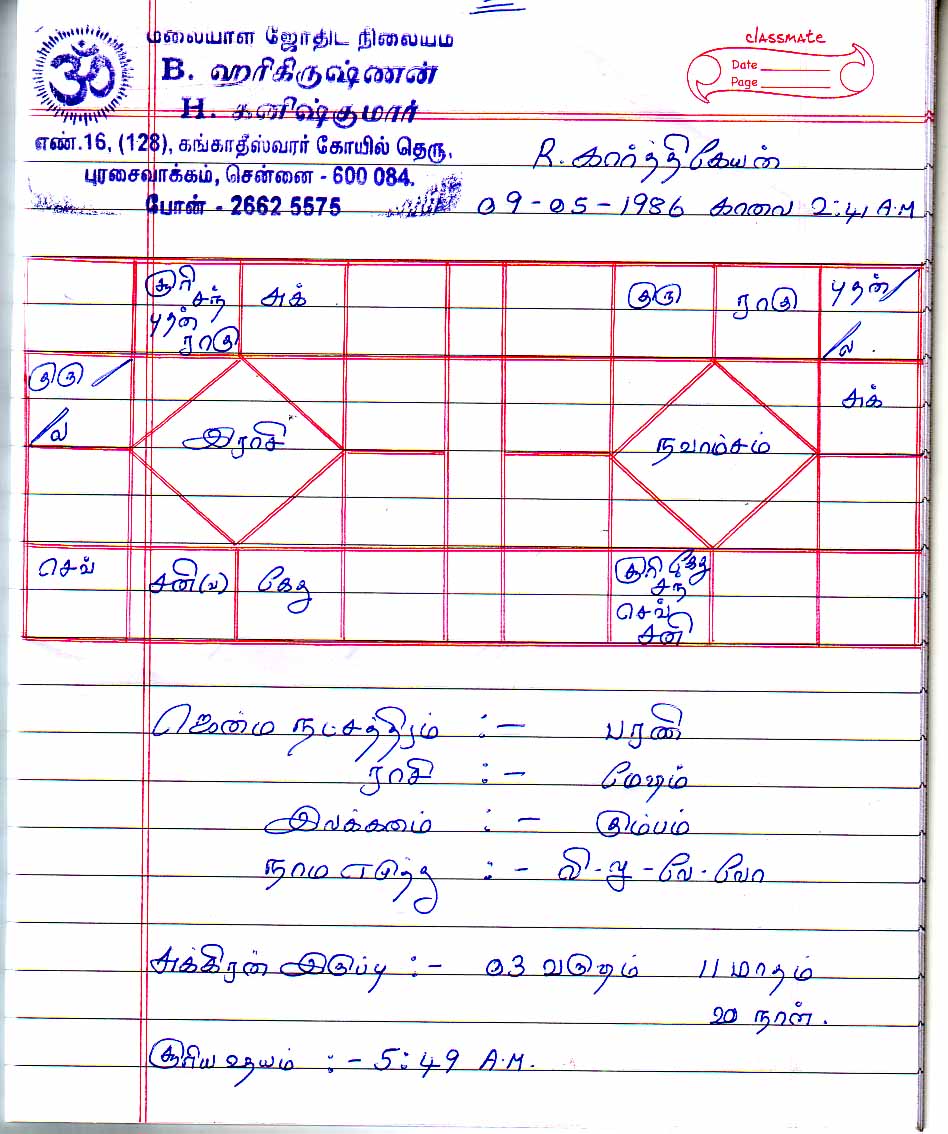 மலையாள ஜோதிட நிலையம்
B. ஹரிகிருஷ்ணன்
H. கனிஷ்குமார்
எண்.16, (128), கங்காதீஸ்வரர் கோயில் தெரு,
புரசைவாக்கம், சென்னை - 600 084.
போன் - 2662 5575
classmate
Date
Page
R. கார்த்திகேயன்
09-05-1986 காலை 2:41 A.M
சூரி
சந்
புதன்
ராகு
சுக்
குரு
ல
இராசி
செவ்
சனி(வ)
கேது
குரு
ராகு
புதன்
ல
சுக்
நவாம்சம்
சூரி கேது
சந்
செவ்
சனி
ஜென்ம நட்சத்திரம் :- பரணி
ராசி :- மேஷம்
இலக்கனம் :- கும்பம்
நாம எழுத்து :- லி-லு-லே-லோ
சுக்கிரன் இருப்பு :- 03 வருஷம் 11 மாதம்
20 நாள்.
சூரிய உதயம் :- 5:49 A.M.